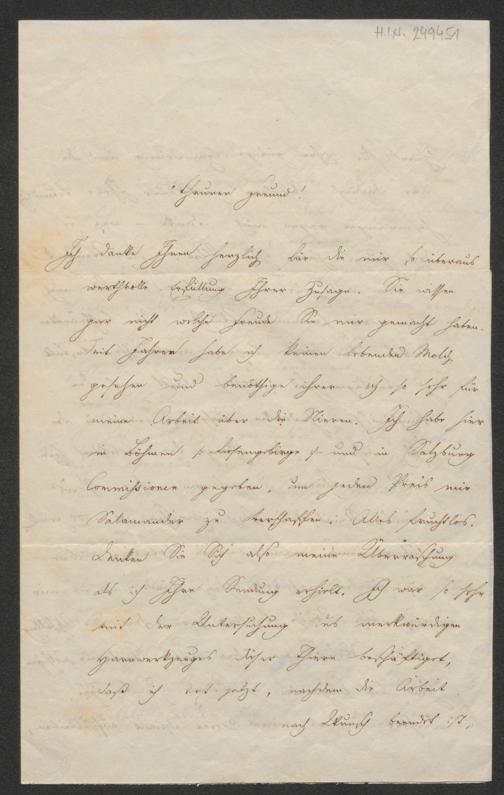 H.I.N. 249451
Theurer Freund!
Ich danke Ihnen herzlich für die mir so überaus
werthvolle Erfüllung Ihrer Zusage. Sie wissen
gar nicht welche Freude Sie mir gemacht haben.
Seit Jahren habe ich keinen lebenden Molch
gesehen und benöthige ihrer so sehr für
meine Arbeit über die Nieren. Ich habe hier
in Böhmen /: Isergebirge :/ und in Salzburg
Commissionen gegeben, um jeden Preis mir
Salamander zu verschaffen. Alles fruchtlos.
Denken Sie Sich also meine Überraschung
als ich Ihre Sendung erhielt. Ich war so sehr
mit der Untersuchung des merkwürdigen
Harnwerkzeuges dieser Thiere beschäftiget,
daß ich erst jetzt, nachdem die Arbeit
nach Wunsch beendet ist,